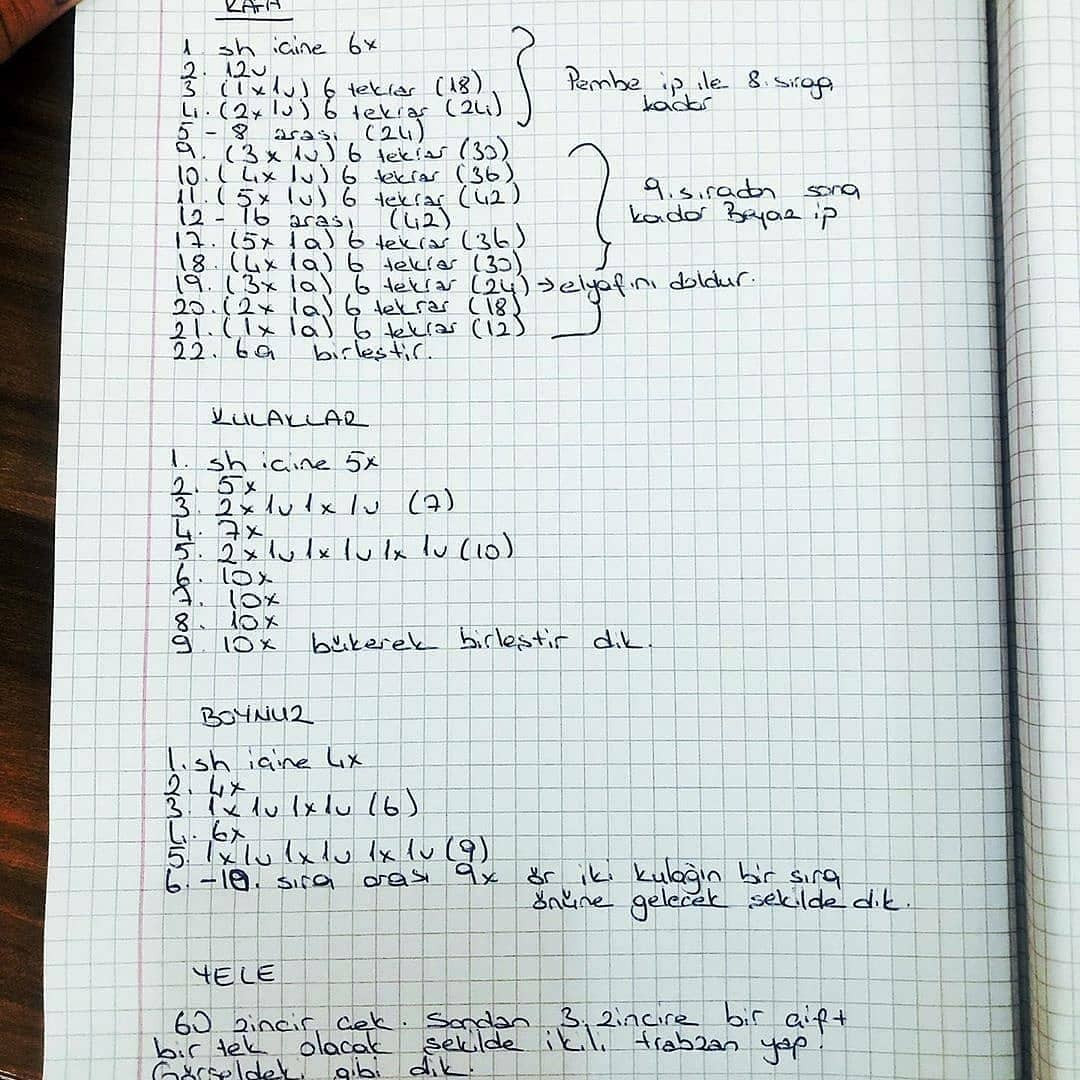 KAFA
1. sh içine 6x
2. 12v
3. (1x1v) 6 tekrar (18)
4. (2x1v) 6 tekrar (24)
Pembe ip ile 8. sıraya
kadar
5 - 8 arası (24)
9. (3x1v) 6 tekrar (30)
10. (4x1v) 6 tekrar (36)
11. (5x1v) 6 tekrar (42)
12 - 16 arası (42)
9. sıradan sona
kadar Beyaz ip
17. (5x1a) 6 tekrar (36)
18. (4x1a) 6 tekrar (30)
19. (3x1a) 6 tekrar (24) → elyafını doldur.
20. (2x1a) 6 tekrar (18)
21. (1x1a) 6 tekrar (12)
22. 6a birleştir.
KULAKLAR
1. sh içine 5x
2. 5x
3. 2x1v1x1v (7)
4. 7x
5. 2x1v1x1v1x1v (10)
6. 10x
7. 10x
8. 10x
9 10x bükerek birleştir dik.
BOYNUZ
1. sh içine 4x
2. 4x
3. 1x1v1x1v (6)
4. 6x
5. 1x1v1x1v1x1v (9)
6. -10. sıra arası 9x ör iki kulağın bir sıra
önüne gelecek şekilde dik.
YELE
60 zincir çek. Sondan 3. zincire bir çift
bir tek olacak şekilde ikili trabzan yap.
Görseldeki gibi dik.